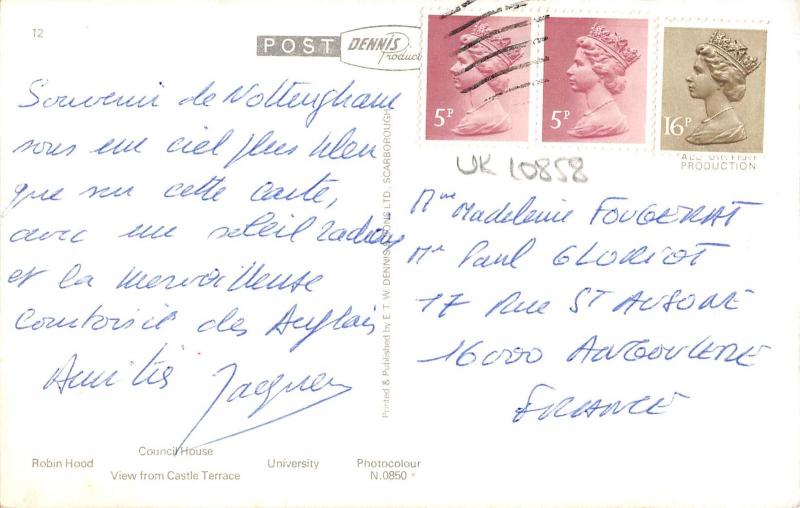 12
POST DENNIS Product
5P
5P
16P
UK 10858
PRODUCTION
Souvenir de Nottingham
sous un ciel plus bleu
que sur cette carte,
avec un soleil radieux
et la merveilleuse
courtoisie des Anglais
Amitiés Jacques
Printed & Published by E. T. W. DENNIS & SONS LTD., SCARBOROUGH
Mme Madeleine FOUGERAT
Mr Paul GLORIOT
17 Rue ST AUSONE
16000 ANGOULEME
FRANCE
Council House
Robin Hood University Photocolour
View from Castle Terrace N.0850